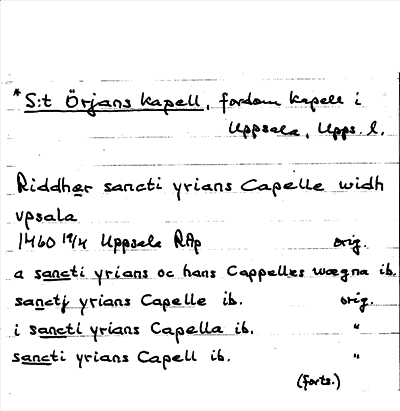 * S:t Örjans kapell, fordom kapell i
Uppsala, Upps. l.
Riddher sancti yrians Capelle widh
vpsala
1460 19/4 Uppsala RAp orig.
a sancti yrians oc hans Cappelles wægna ib.
sanctj yrians Capelle ib. orig.
i sancti yrians Capella ib. "
sancti yrians Capell ib. "
(forts.)